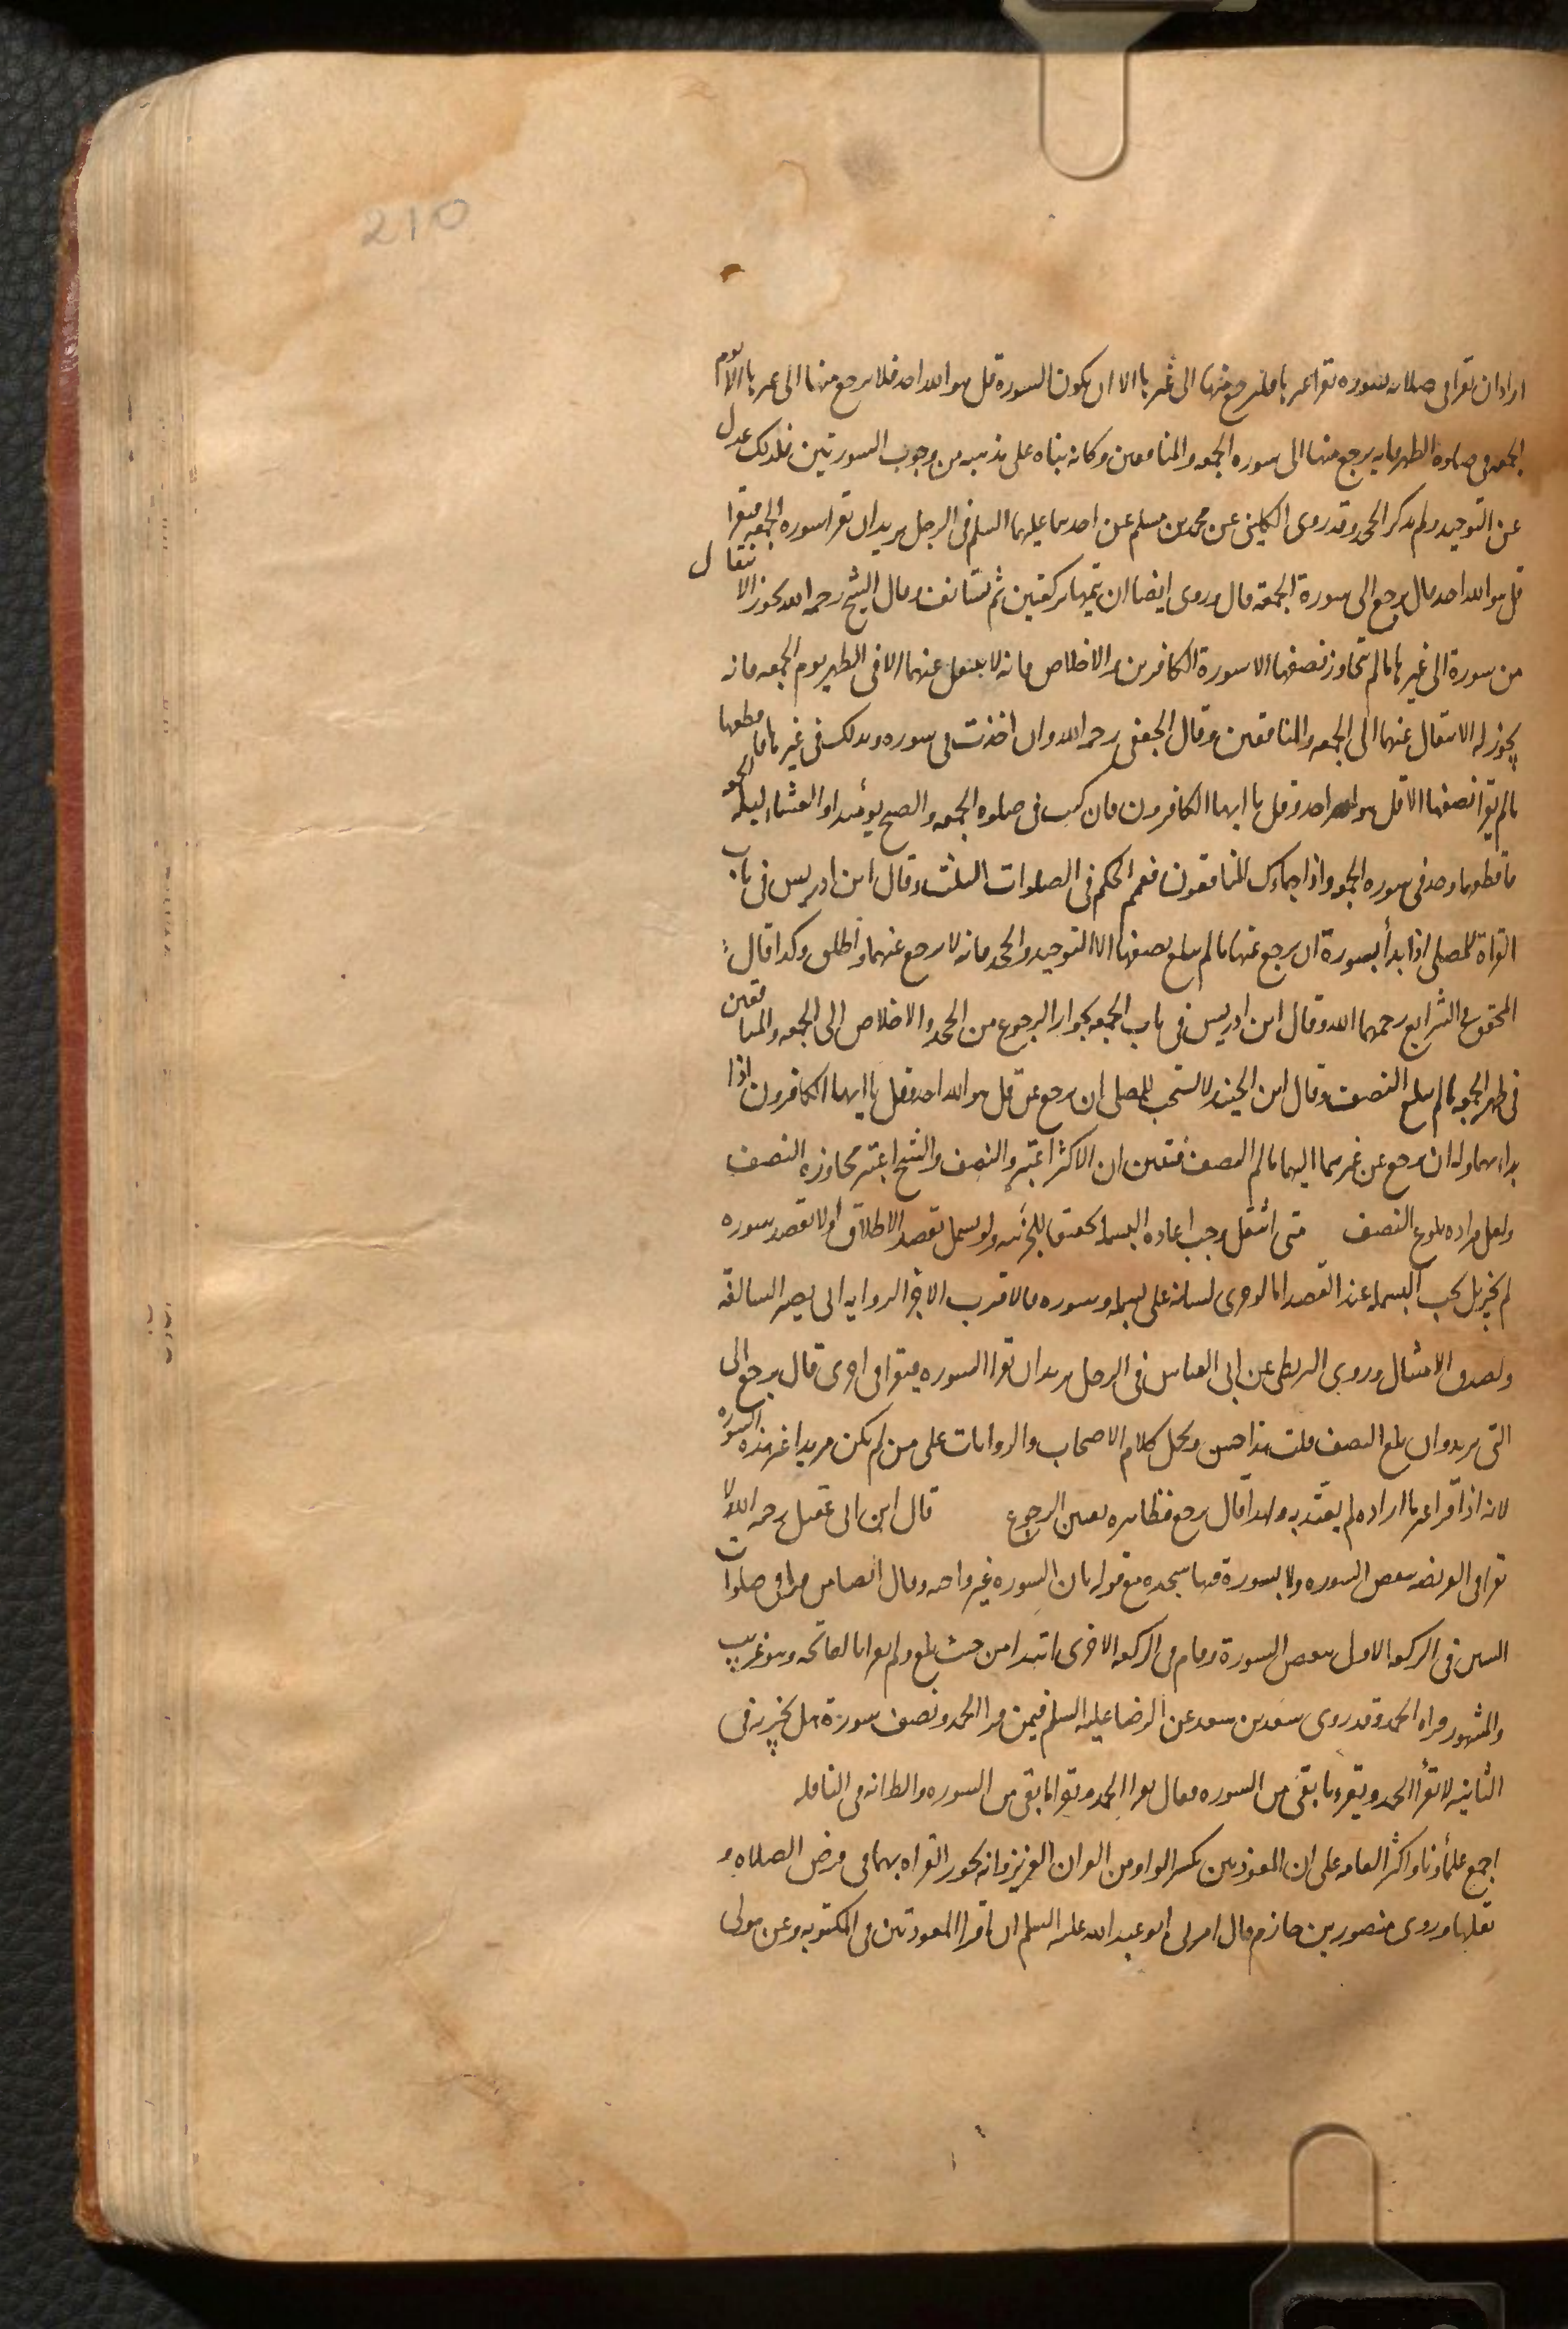 210
اراد ان يقرا فى صلاته بسوره فقرا غيرها فليرجع منها الى غيرها الا ان يكون السورة قل هو الله احد فلا يرجع منها الى غيرها الا يوم
الجمعه فى صلوة الظهر فانه يرجع منها الى سوره الجمعه والمنافقين وكانه بناه على مذهبه من وجوب السورتين فلذلك عدل
عن التوحيد ولم يذكر الجحد وقد روى الكلينى عن محمد بن مسلم عن احدهما عليهما السلم فى الرجل يريد ان يقرا سوره الجمعه فيقرا
قل هو الله احد قال يرجع الى سورة الجمعة قال وروى ايضا ان يتمها ركعتين ثم يستانف وقال الشيخ رحمه الله يجوز الانتقال
من سورة الى غيرها ما لم يتجاوز نصفها الا سورة الكافرين والاخلاص فانه لا ينتقل عنهما الا فى الظهر يوم الجمعه فانه
يجوز له الانتقال عنهما الى الجمعه والمنافقين وقال الجعفى رحمه الله وان اخذت فى سوره وبدا لك فى غيرها فاقطعها
ما لم يقرا نصفها الا قل هو الله احد وقل يا ايها الكافرون فان كنت فى صلوه الجمعه والصبح يومئذ او العشاء ليلة الجمعه
فاقطعهما وخذ فى سوره الجمعه واذا جاءك المنافقون فعمم الحكم فى الصلوات الثلث وقال ابن ادريس فى باب
القراة للمصلى اذا بدأ بسورة ان يرجع عنها ما لم يبلغ نصفها الا التوحيد والجحد فانه لا يرجع عنهما واطلق وكذا قال
المحقق فى الشرايع رحمهما الله وقال ابن ادريس فى باب الجمعه بجواز الرجوع من الجحد والاخلاص الى الجمعه والمنافقين
فى ظهر الجمعه ما لم يبلغ النصف وقال ابن الجنيد لا يستحب للمصلى ان يرجع عن قل هو الله احد وقل يا ايها الكافرون اذا
بدا بهما وله ان يرجع عن غيرهما اليهما ما لم النصف فتعين ان الاكثر اعتبر النصف والشيخ اعتبر مجاوزه النصف
ولعل مراده بلوغ النصف متى انتقل وجب اعاده البسمله تحقيقا للجزئيه ولو بسمل بقصد الاطلاق او لا بقصد سوره
لم يجز بل يجب البسمله عند القصد اما لو جرى لسانه على بسمله وسوره فالاقرب الاجزا لروايه ابى بصير السالفه
ولصدق الامتثال وروى البزنطى عن ابى العباس فى الرجل يريد ان يقرا السوره فيقرا فى اخرى قال يرجع الى
التى يريد وان بلغ النصف قلت هذا حسن ويحمل كلام الاصحاب والروايات على من لم يكن مريدا غير هذه السوره
لانه اذا قرا غير ما اراده لم يعتد به ولهذا قال يرجع فظاهره تعين الرجوع قال ابن ابى عقيل رحمه الله لا
يقرا فى الفريضه ببعض السوره ولا بسورة فيها سجده مع قوله بان السوره غير واجبه وقال ايضا من قرا فى صلوات
السنن فى الركعه الاولى ببعض السورة وقام فى الركعه الاخرى ابتدا من حيث بلغ ولم يقرا بالفاتحه وهو غريب
والمشهور قراه الحمد وقد روى سعد بن سعد عن الرضا عليه السلم فيمن قرا الحمد ونصف سورة هل يجزيه فى
الثانيه لا يقرأ الحمد ويقرء ما بقى من السوره فقال يقرا الحمد ويقرا ما بقى من السوره والظاهر انه فى النافله
اجمع علمأونا واكثر العامه على ان المعوذتين بكسر الواو من القران العزيز وانه يجوز القراه بهما فى فرض الصلاه و
نفلها وروى منصور بن حازم قال امرنى ابو عبد الله عليه السلم ان اقرا المعوذتين فى المكتوبه وعن مولى